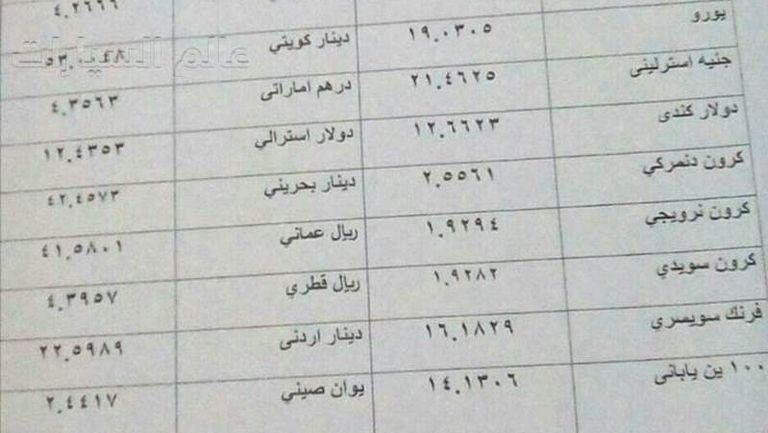 ٤.٢٦٦٦
يورو ١٩.٠٣٠٥ دينار كويتي
عالم السيارات
جنيه استرلينى ٢١.٤٦٢٥ درهم اماراتى ٤.٣٥٦٣
دولار كندى ١٢.٦٦٢٣ دولار استرالي ١٢.٤٣٥٣
كرون دنمركي ٢.٥٥٦١ دينار بحريني ٤٢.٤٥٧٣
كرون نرويجي ١.٩٢٩٤ ريال عماني ٤١.٥٨٠١
كرون سويدي ١.٩٢٨٢ ريال قطري ٤.٣٩٥٧
فرنك سويسري ١٦.١٨٢٩ دينار اردنى ٢٢.٥٩٨٩
١٠٠ ين يابانى ١٤.١٣٠٦ يوان صيني ٢.٤٤١٧